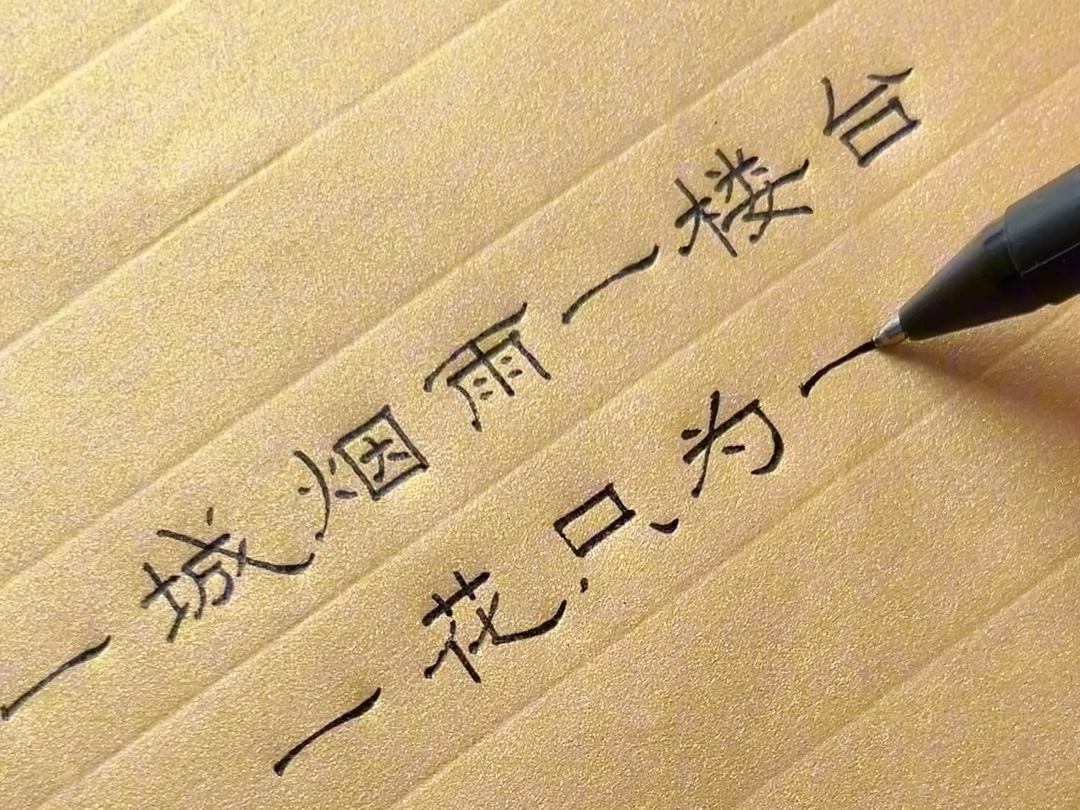 一城烟雨一楼台
一花只为一